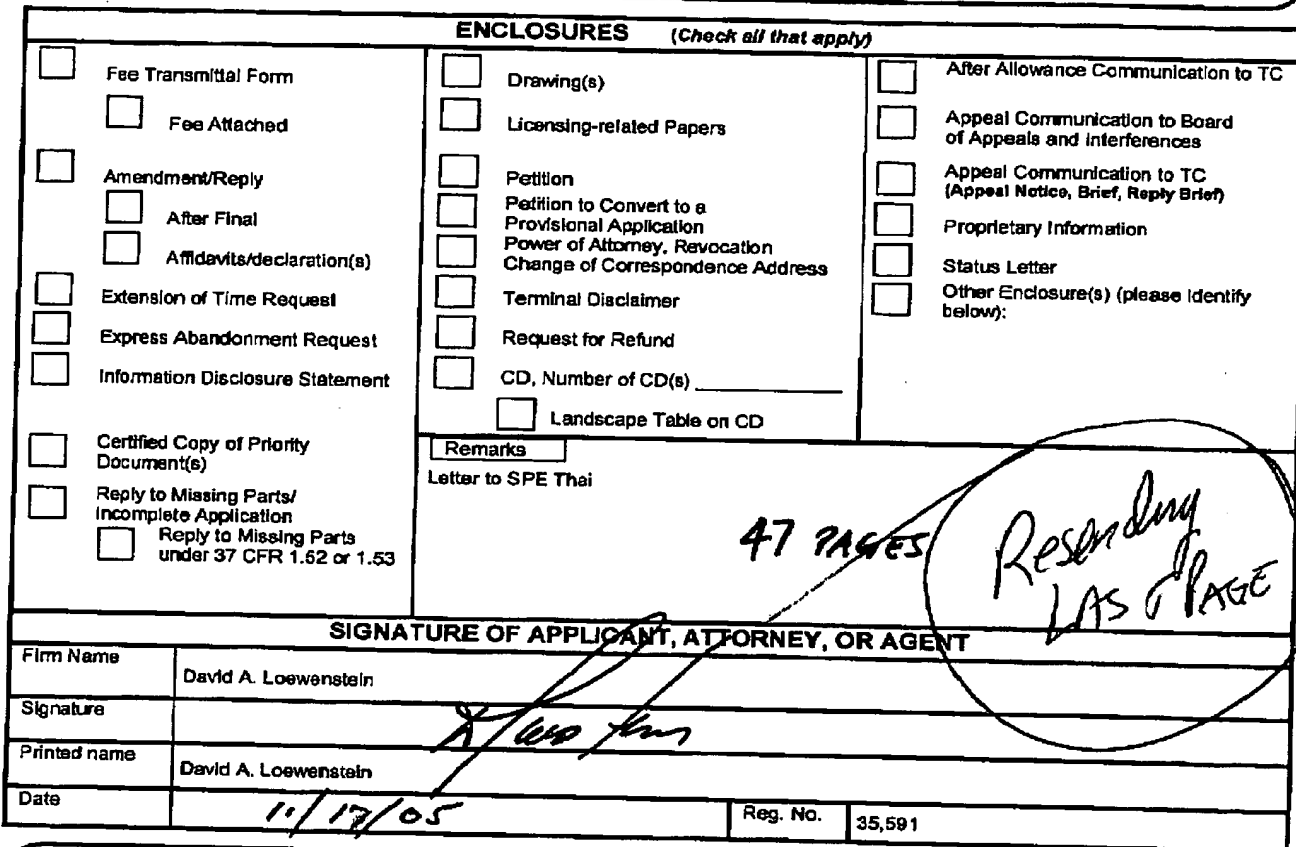 ENCLOSURES (Check all that apply)
Fee Transmittal Form
Fee Attached
Amendment/Reply
After Final
Affidavits/declaration(s)
Extension of Time Request
Express Abandonment Request
Information Disclosure Statement
Certified Copy of Priority
Document(s)
Reply to Missing Parts/
Incomplete Application
Reply to Missing Parts
under 37 CFR 1.52 or 1.53
Drawing(s)
Licensing-related Papers
Petition
Petition to Convert to a
Provisional Application
Power of Attorney, Revocation
Change of Correspondence Address
Terminal Disclaimer
Request for Refund
CD, Number of CD(s)
Landscape Table on CD
After Allowance Communication to TC
Appeal Communication to Board
of Appeals and Interferences
Appeal Communication to TC
(Appeal Notice, Brief, Reply Brief)
Proprietary Information
Status Letter
Other Enclosure(s) (please Identify
below):
Remarks
Letter to SPE Thai
47 PAGES
Resending
LAST PAGE
SIGNATURE OF APPLICANT, ATTORNEY, OR AGENT
Firm Name
David A. Loewenstein
Signature
Printed name
David A. Loewenstein
Date
11/17/05
Reg. No.
35,591